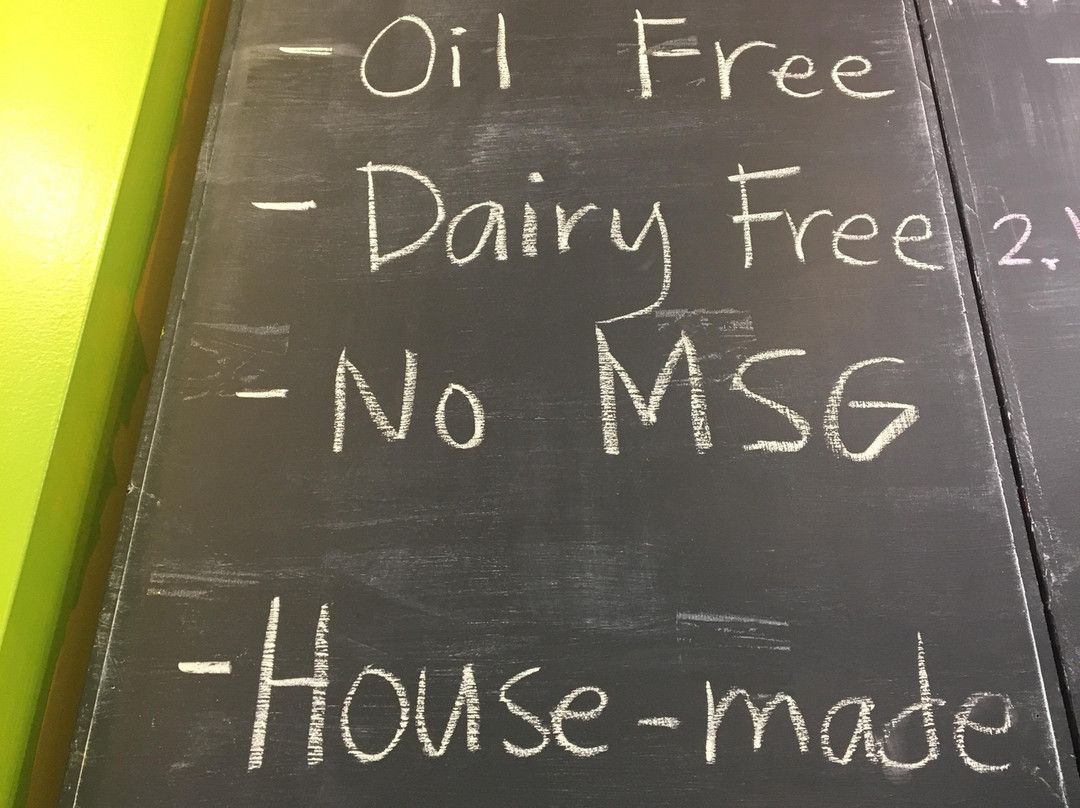 - Oil Free
- Dairy Free
- No MSG
- House-made
2.